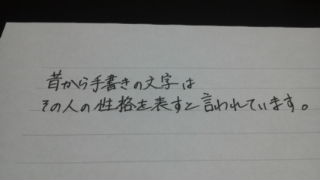 昔から手書きの文字は
その人の性格を表すと言われています。